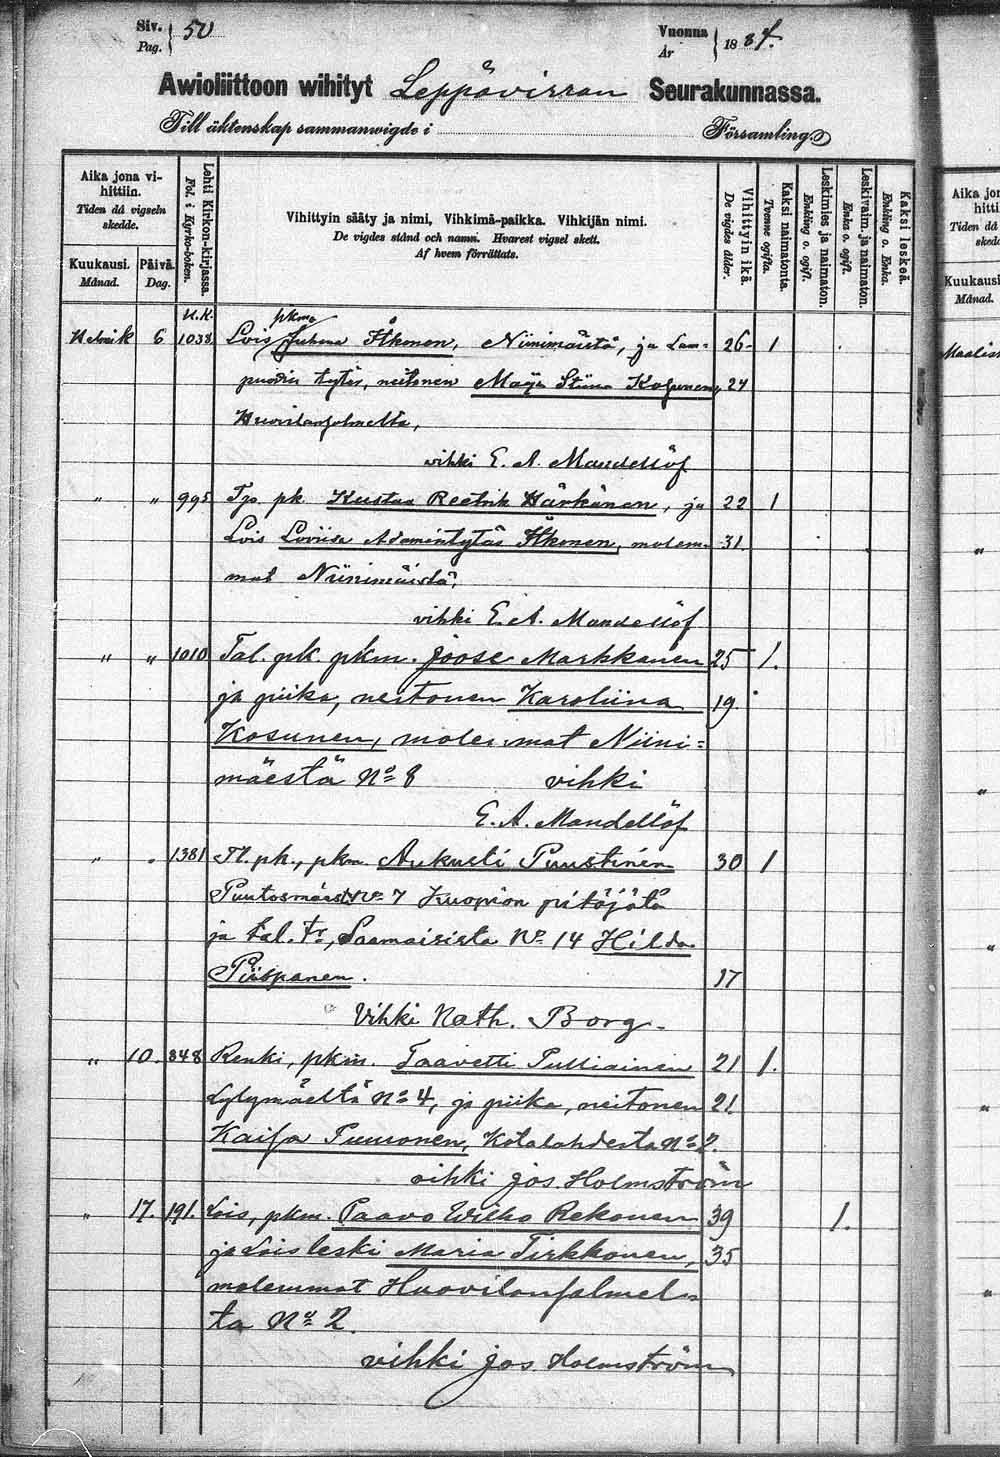 Siv. 50
Pag.
Vuonna 1884.
År
Awioliittoon wihityt Leppävirran Seurakunnassa.
Till äktenskap sammanwigde i Församling.
Aika jona vihittiin.
Tiden då vigseln skedde.
Kuukausi. Päivä.
Månad. Dag.
Lehti Kirkon-kirjassa.
Fol. i Kyrko-boken.
Vihittyin sääty ja nimi, Vihkimä-paikka. Vihkijän nimi.
De vigdes stånd och namn. Hvarest vigsel skett.
Af hvem förrättats.
Vihittyin ikä.
De vigdes ålder.
Kaksi naimatonta.
Tvenne ogifta.
Leskimies ja naimaton.
Enkling o. ogift.
Leskivaim. ja naimaton.
Enka o. ogift.
Kaksi leskeä.
Enkling o. Enka.
Helmik 6 1038 Lois pkma Juhana Itkonen, Niinimäistä, ja Lam= 26 1
puodin tytär, neitonen Maija Stiina Kolhunen, 24
Huovilansalmelta,
vihki E. A. Mandellöf
" " 995 pk. Kustaa Reetrik Härkänen, ja 22 1
Lois Loviisa Adamintytäs Itkonen, molem= 31
mat Niinimäistä,
vihki E. A. Mandellöf
" " 1010 Tal. pk. pkm. Joose Markkanen 25 1.
ja piika, neitonen Karoliina 19
Kosunen, molemmat Niini=
mäestä No 8 vihki
E. A. Mandellöf
" " 1381 Tl. pk., pkm. Aukusti Puustinen 30 1
Puutosmäestä No 7 Kuopion pitäjätä
ja tal. tr, Saamaisista No 14 Hilda
Piispanen. 17
Vihki Nath. Borg.
" 10. 848 Renki, pkm. Taavetti Pulliainen 21 1.
Lylymäeltä No 4, ja piika, neitonen 21
Kaisa Tuuronen, Kotalahdesta No 2.
vihki Jos. Holmström
" 17. 191. Lois, pkm. Paavo Wilho Rekonen 39 1.
ja Lois leski Maria Tirkkonen, 35
molemmat Huovilansalmel=
ta No 2.
vihki Jos. Holmström
Aika jon
hitti
Tiden då
skedd
Kuukausi
Månad.
Maalisk
"
"
"
"
"